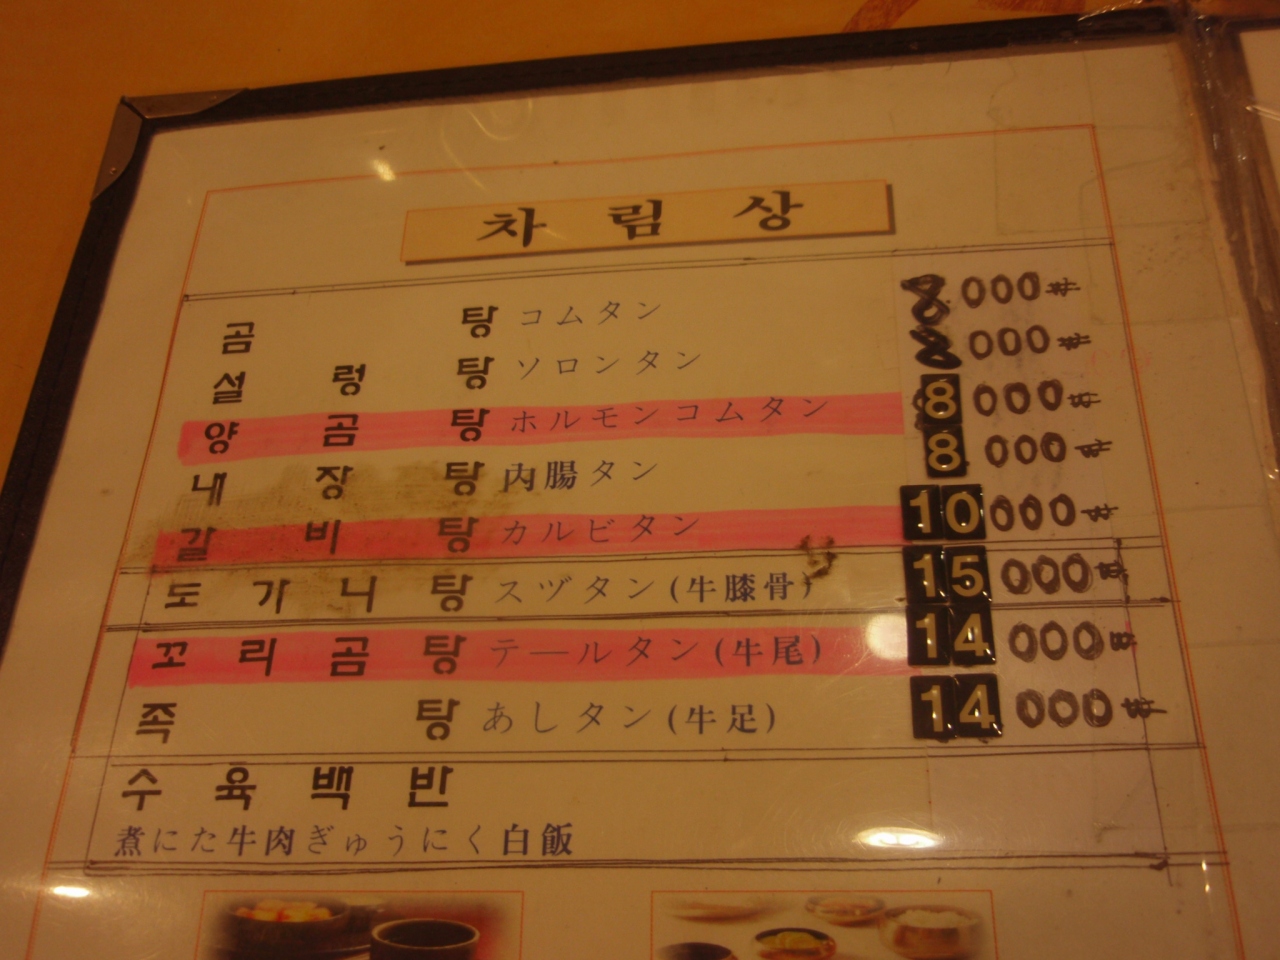 차림상
곰탕 コムタン 8000
설렁탕 ソロンタン 8000
양곰탕 ホルモンコムタン 8000
내장탕 內腸タン 8000
갈비탕 カルビタン 10000
도가니탕 スヅタン(牛膝骨) 15000
꼬리곰탕 テールタン(牛尾) 14000
족탕 あしタン(牛足) 14000
수육백반
煮にた牛肉ぎゅうにく白飯